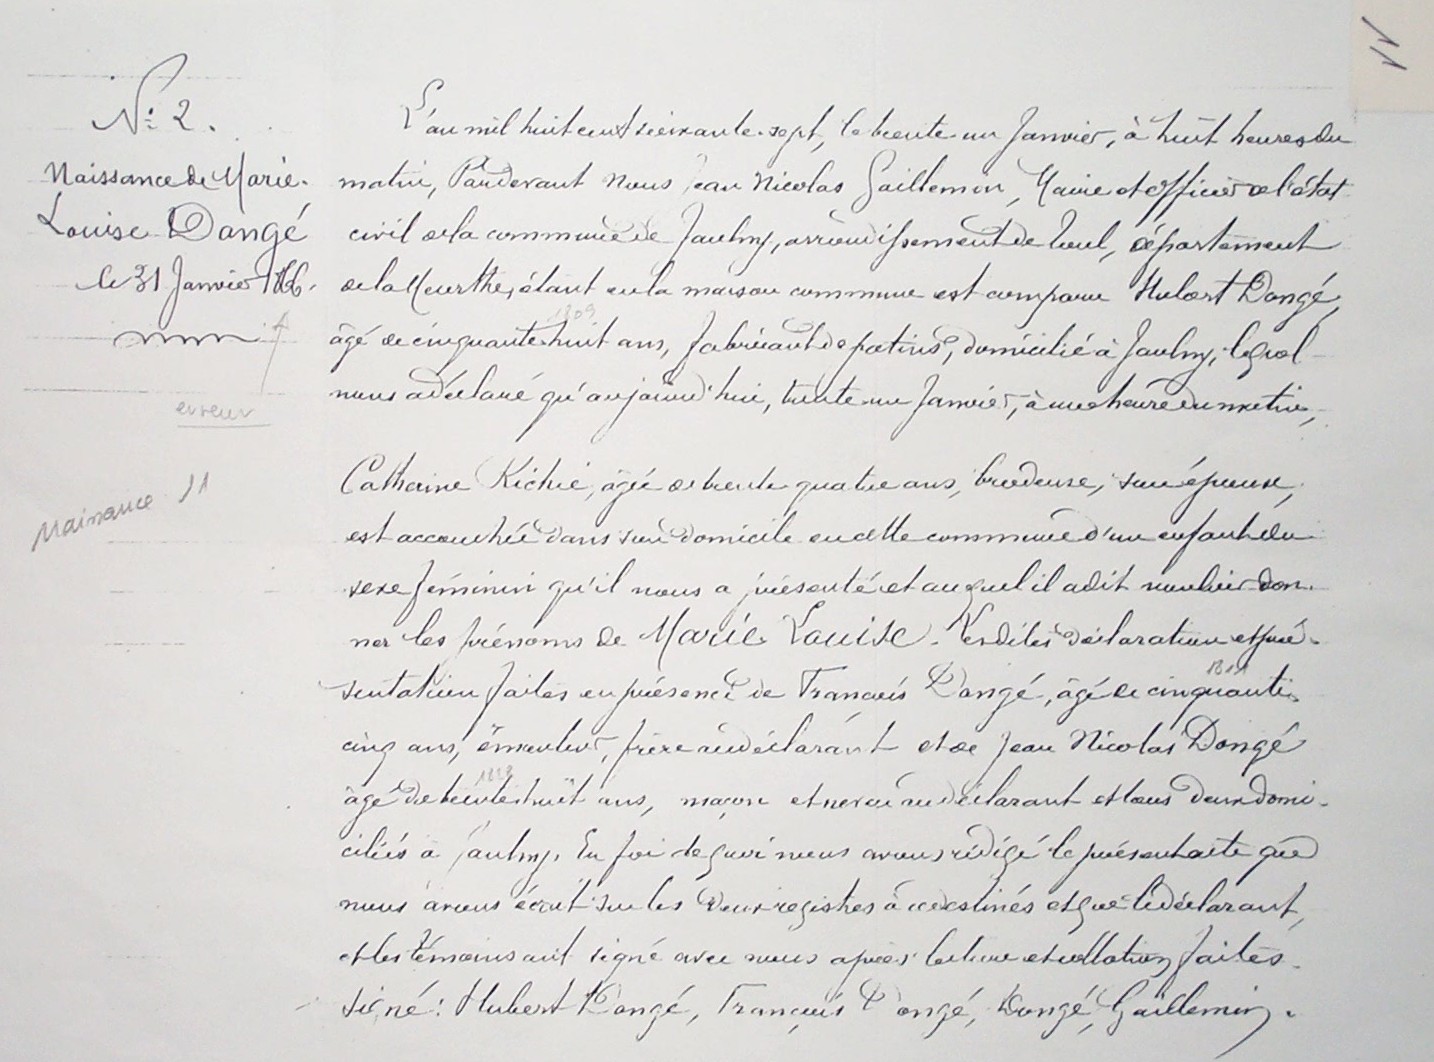 11
N° 2.
Naissance de Marie-
Louise Dangé
le 31 Janvier 1866.
erreur
Naissance 11
L'an mil huit cent soixante-sept, le trente un Janvier, à huit heures du
matin, Pardevant Nous Jean Nicolas Gaillemin, Maire et officier de l'état
civil de la commune de Jaulny, arrondissement de Toul, département
de la Meurthe, étant en la maison commune est comparu Hubert Dangé,
1809
âgé de cinquante huit ans, fabricant de patins, domicilié à Jaulny, lequel
nous a déclaré qu'aujourd'hui, trente un Janvier, à une heure du matin,
Catherine Kichié, âgée de trente quatre ans, brodeuse, son épouse,
est accouchée dans son domicile en cette commune d'un enfant du
sexe féminin qu'il nous a présenté et auquel il a dit vouloir don-
ner les prénoms de Marie Louise. Lesdites déclaration et pré-
sentation faites en présence de François Dangé, âgé de cinquante
cinq ans, frère au déclarant et de Jean Nicolas Dangé
âgé de trente huit ans, maçon et neveu au déclarant et tous deux domi-
ciliés à Jaulny. En foi de quoi nous avons rédigé le présent acte que
nous avons écrit sur les deux registres à ce destinés et que le déclarant,
et les témoins ont signé avec nous après lecture et collation faites.
signé: Hubert Dangé, François Dangé, Dangé, Gaillemin.